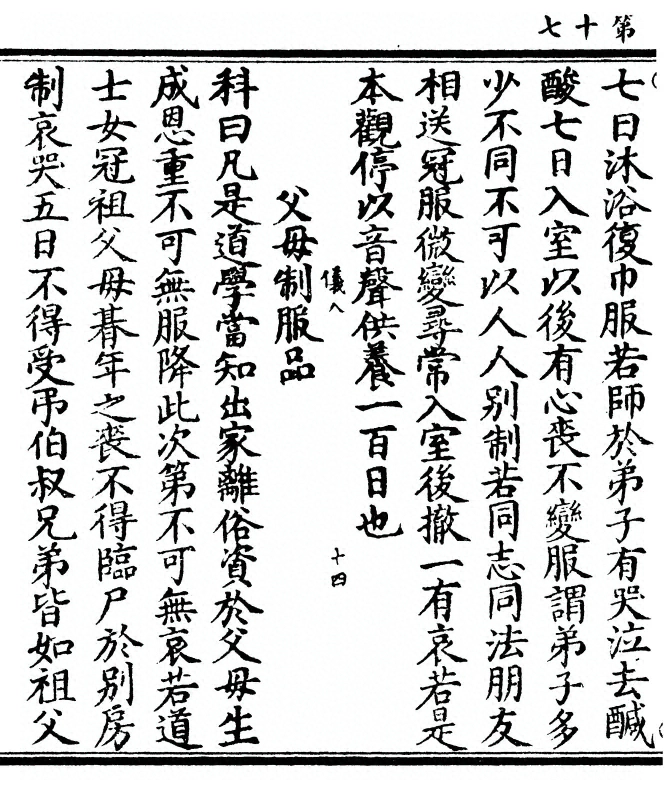 第十七
七日沐浴復巾服若師於弟子有哭泣去醎
酸七日入室以後有心喪不變服謂弟子多
少不同不可以人人別制若同志同法朋友
相送冠服微變尋常入室後撤一有哀若是
本觀停以音聲供養一百日也
儀八
十四
父母制服品
科曰凡是道學當知出家離俗資於父母生
成恩重不可無服降此次第不可無哀若道
士女冠祖父母朞年之喪不得臨尸於別房
制哀哭五日不得受弔伯叔兄弟皆如祖父